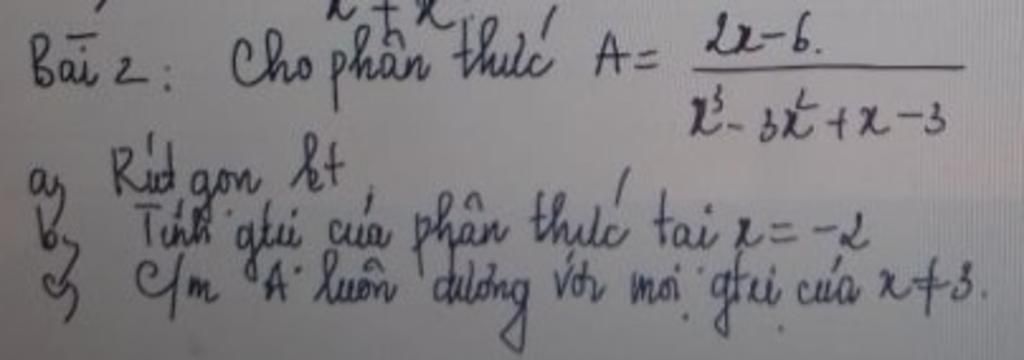 x + x
Bài 2: Cho phân thức A = (2x-6)/(x³ - 3x² + x - 3)
a, Rút gọn bt
b, Tính gtrị của phân thức tại x = -2
c, C/m A luôn dương với mọi gtrị của x ≠ 3.